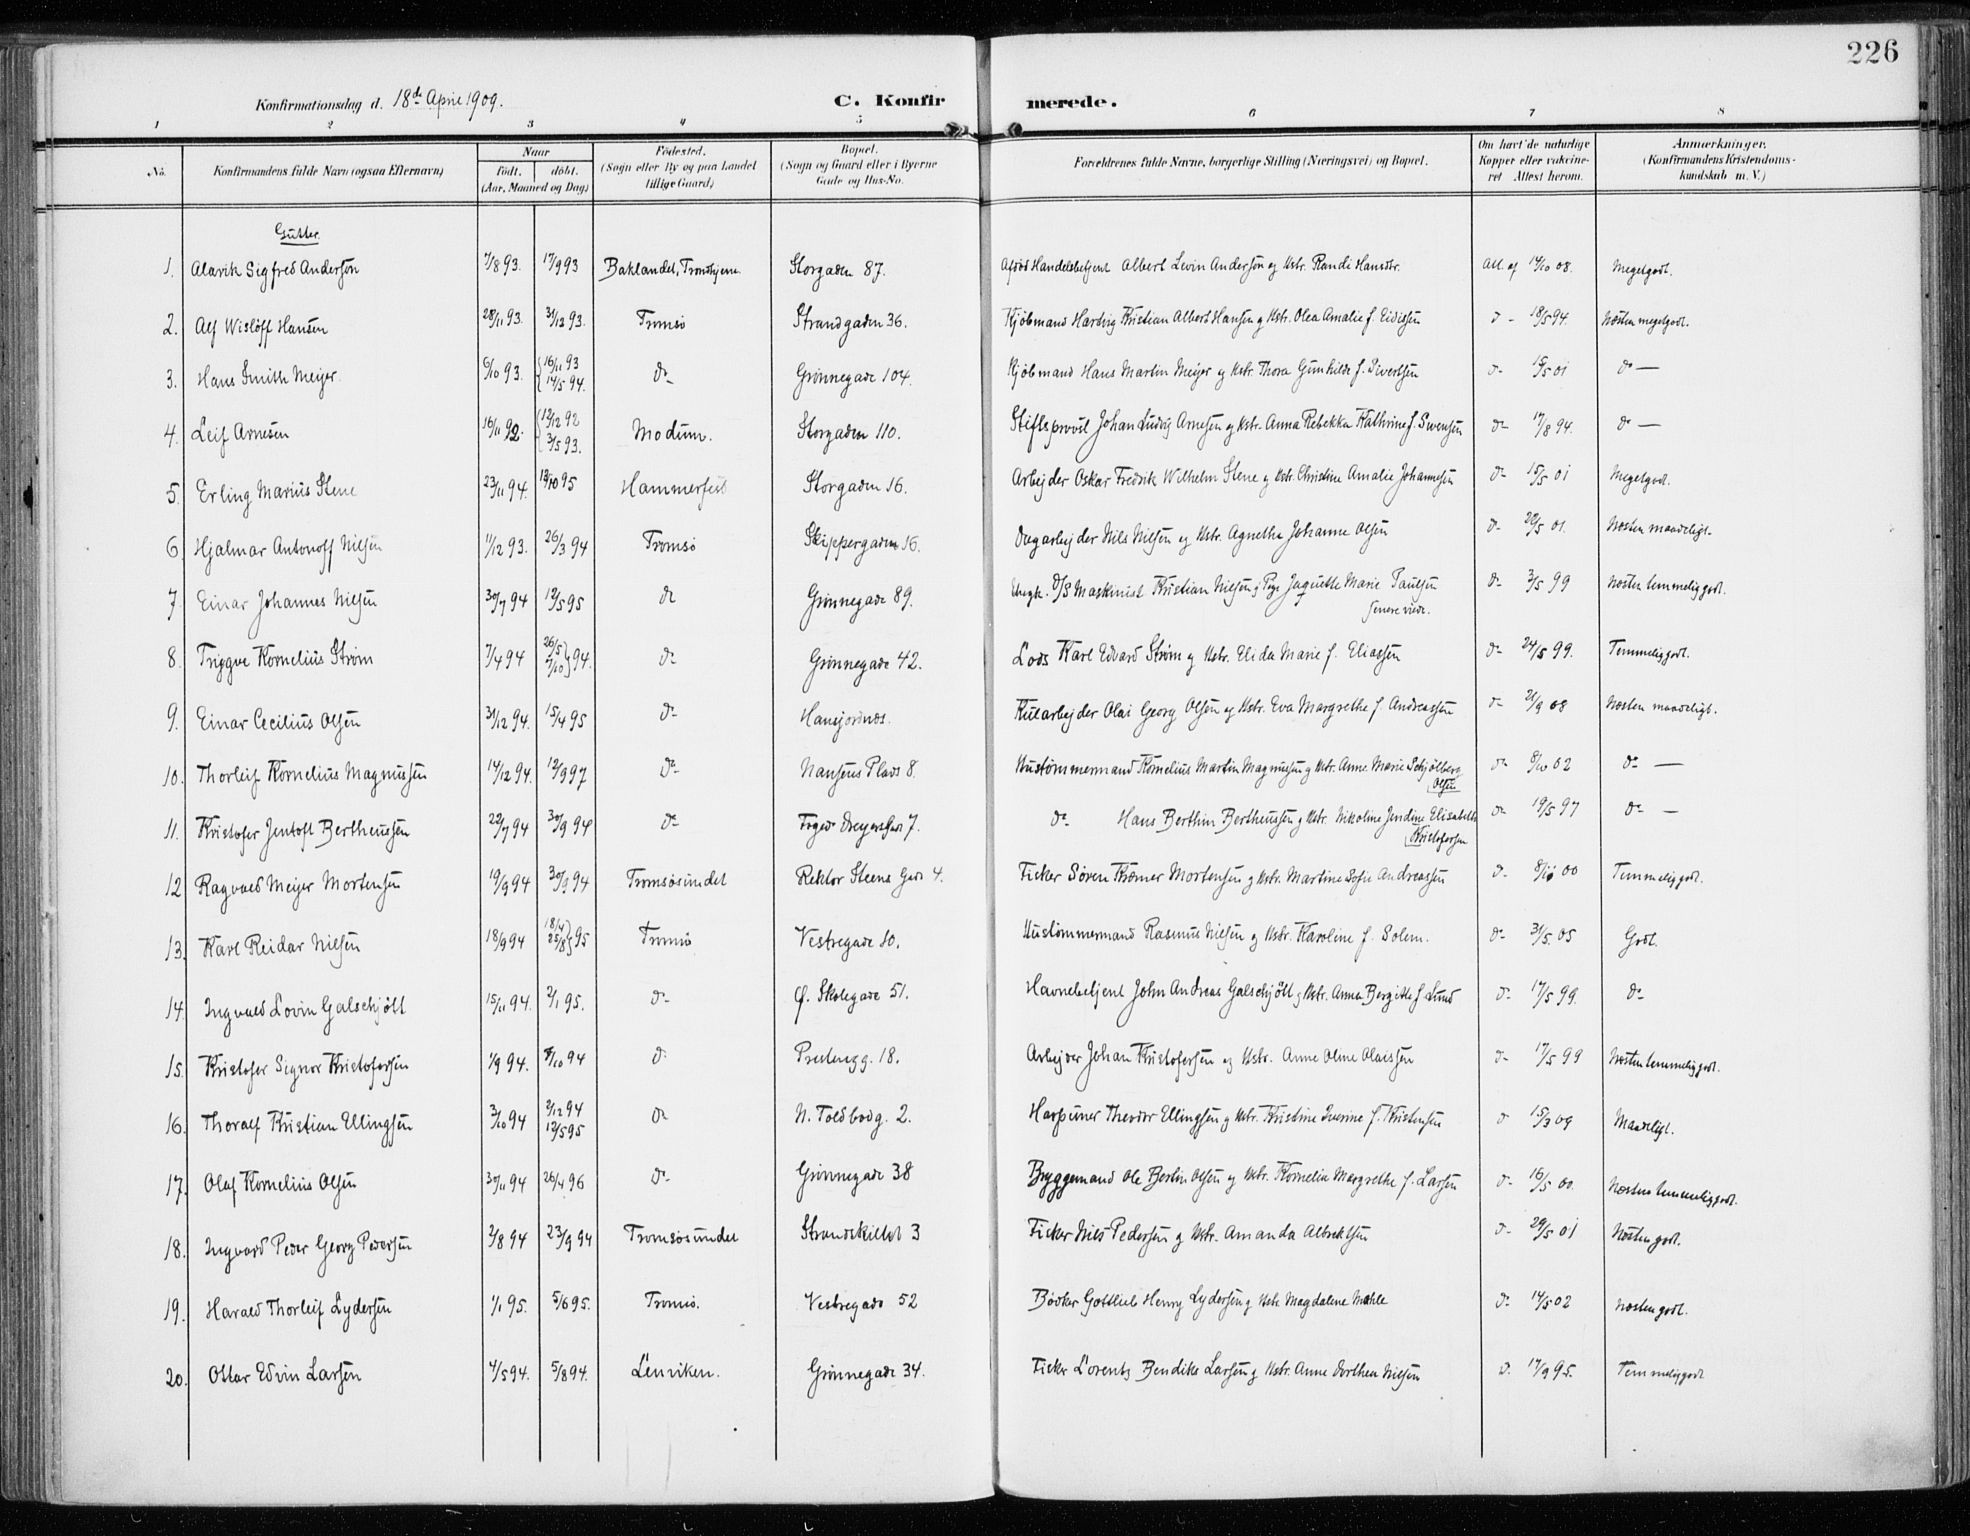 226
Konfirmationsdag d. 18de April 1909.
C. Konfirmerede.
1 2 3 4 5 6 7 8
No. Konfirmandens fulde Navn (ogsaa Efternavn) Naar født. døbt. (Aar, Maaned og Dag) Fødested. (Sogn eller By og paa Landet tillige Gaard) Bopæl. (Sogn og Gaard eller i Byerne Gade og Hus-No. Forældrenes fulde Navne, borgerlige Stilling (Næringsvei) og Bopæl. Om havt de naturlige Kopper eller vakcineret Attest herom. Anmærkninger. (Konfirmandens Kristendomskundskab m. V.)
Gutter
1. Alarik Sigfred Anderson 7/8 93. 17/9 93 Baklandet, Trondhjem Storgaden 87. Afdød Handelsbetjent Albert Levin Anderson og Hstr. Randi Hansdtr. Att. af 14/10 08. Megetgodt.
2. Alf Wisløff Hansen 28/11 93. 31/12 93. Tromsø Strandgaden 36. Kjøbmand Hartvig Kristian Albert Hansen og Hstr. Olea Amalie f. Eidissen d- 18/5 94. Næsten megetgodt.
3. Hans Smith Meijer. 6/10 93. {16/11 93 14/5 94. do- Grønnegade 104. Kjøbmand Hans Martin Meijer og Hstr. Thora Gunhilde f. Sivertsen d- 15/5 01 do —
4. Leif Arnesen 16/11 92. {12/12 92 3/5 93. Modum. Storgaden 110. Stiftsprovst Johan Ludvig Arnesen og Hstr. Anna Rebekka Kathrine f. Svensen do- 17/8 94. do —
5. Erling Marius Stene 23/11 94. 13/10 95 Hammerfest Storgaden 16. Arbejder Oskar Fredrik Wilhelm Stene og Hstr. Christine Amalie Johannesen do- 15/5 01 Megetgodt.
6 Hjalmar Antonoff Nilsen 11/12 93. 26/3 94 Tromsø Skippergaden 16. Dagarbejder Nils Nilsen og Hstr. Agnethe Johanne Olsen do- 20/5 01. Næsten maadeligt.
7. Einar Johannes Nilsen 30/7 94 12/5 95 do Grønnegade 89. Ungk. D/S Maskinist Kristian Nilsen og Pige Jaquette Marie Paulsen senere viede. do- 3/5 99 Næsten temmeliggodt.
8. Tryggve Kornelius Strøm 7/4 94 26/5 7/10} 94. do- Grønnegade 42. Lods Karl Edvard Strøm og Hstr. Elida Marie f. Eliassen do- 24/5 99. Temmeliggodt.
9. Einar Cecilius Olsen 31/12 94. 15/4 95 do- Hansjordnæs. Kularbejder Olai Georg Olsen og Hstr. Eva Margrethe f. Andreassen do- 21/9 08 Næsten maadeligt.
10. Thorleif Kornelius Magnussen 14/12 94. 12/9 97 do- Nansens Plads 8. Hustømmermand Kornelius Martin Magnussen og Hstr. Anne Marie Schjølberg Olsen do- 8/10 02 do- —
11. Kristofer Jentoft Bertheussen 22/7 94 30/9 94 do- Foged Dreyersgad 7. do- Hans Berthin Bertheussen og Hstr. Nikoline Jendine Elisabeth Kristofersen do- 19/5 97 do- —
12 Ragvald Meijer Mortensen 19/9 94 30/9 94 Tromsøsundet Rektor Steens Gad 4. Fisker Søren Kræmer Mortensen og Hstr. Martine Sofie Andreassen do- 8/10 00 Temmeliggodt.
13. Karl Reidar Nilsen 18/9 94 18/4 25/8} 95 Tromsø Vestregade 10. Hustømmermand Rasmus Nilsen og Hstr. Karoline f. Solem. do- 31/5 05 Godt.
14. Ingvald Lovin Galschjøtt 15/11 94. 2/1 95. do- Ø. Skolegade 51. Havnebetjent John Andreas Galschjøtt og Hstr. Anna Bergitte f. Lund do- 17/5 99. do-
15. Kristofer Signor Kristofersen 1/9 94. 8/10 94 do Prestengg. 18. Arbejder Johan Kristofersen og Hstr. Anne Oline Olaissen do- 17/5 99 Næsten temmeliggodt.
16. Thoralf Kristian Ellingsen 3/10 94 2/12 94 12/5 95 do N. Toldbodg. 2. Harpuner Theodor Ellingsen og Hstr. Kristine Iverine f. Kristensen do 15/3 09 Maadeligt.
17. Olaf Kornelius Olsen 30/11 94 26/4 96 do- Grønnegade 38 Bryggemand Ole Bertin Olsen og Hstr. Kornelia Margrethe f. Larsen do- 16/5 00. Næsten temmeliggodt.
18. Ingvard Peder Georg Pedersen 2/8 94 23/9 94 Tromsøsundet Strandskillet 3 Fisker Nils Pedersen og Hstr. Amanda Albrektsen do- 29/5 01 Næsten godt.
19. Harald Thorleif Lydersen 1/1 95. 5/6 95. Tromsø. Vestregade 52 Bødker Gottlieb Henry Lydersen og Hstr. Magdalene Mæhle do- 14/5 02 Næsten godt.
20. Ottar Edvin Larsen 4/5 94. 5/8 94. Lenviken. Grønnegade 34. Fisker Lorents Bendiks Larsen og Hstr. Anne Dorthea Nilsen do. 17/9 95. Temmeliggodt